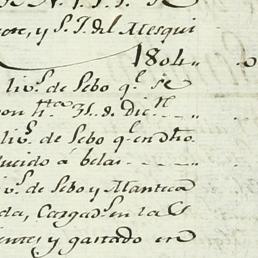 y S. J. del Mesqui
1804..
liv.s de Sebo q.e se
con h.ta 31. de Dic.e
liv.s de Sebo q.e en dho
ucido a belas - - - "
iv.s de Sebo y Manteca
da, Cargad.s en la C
ientes y gastado en